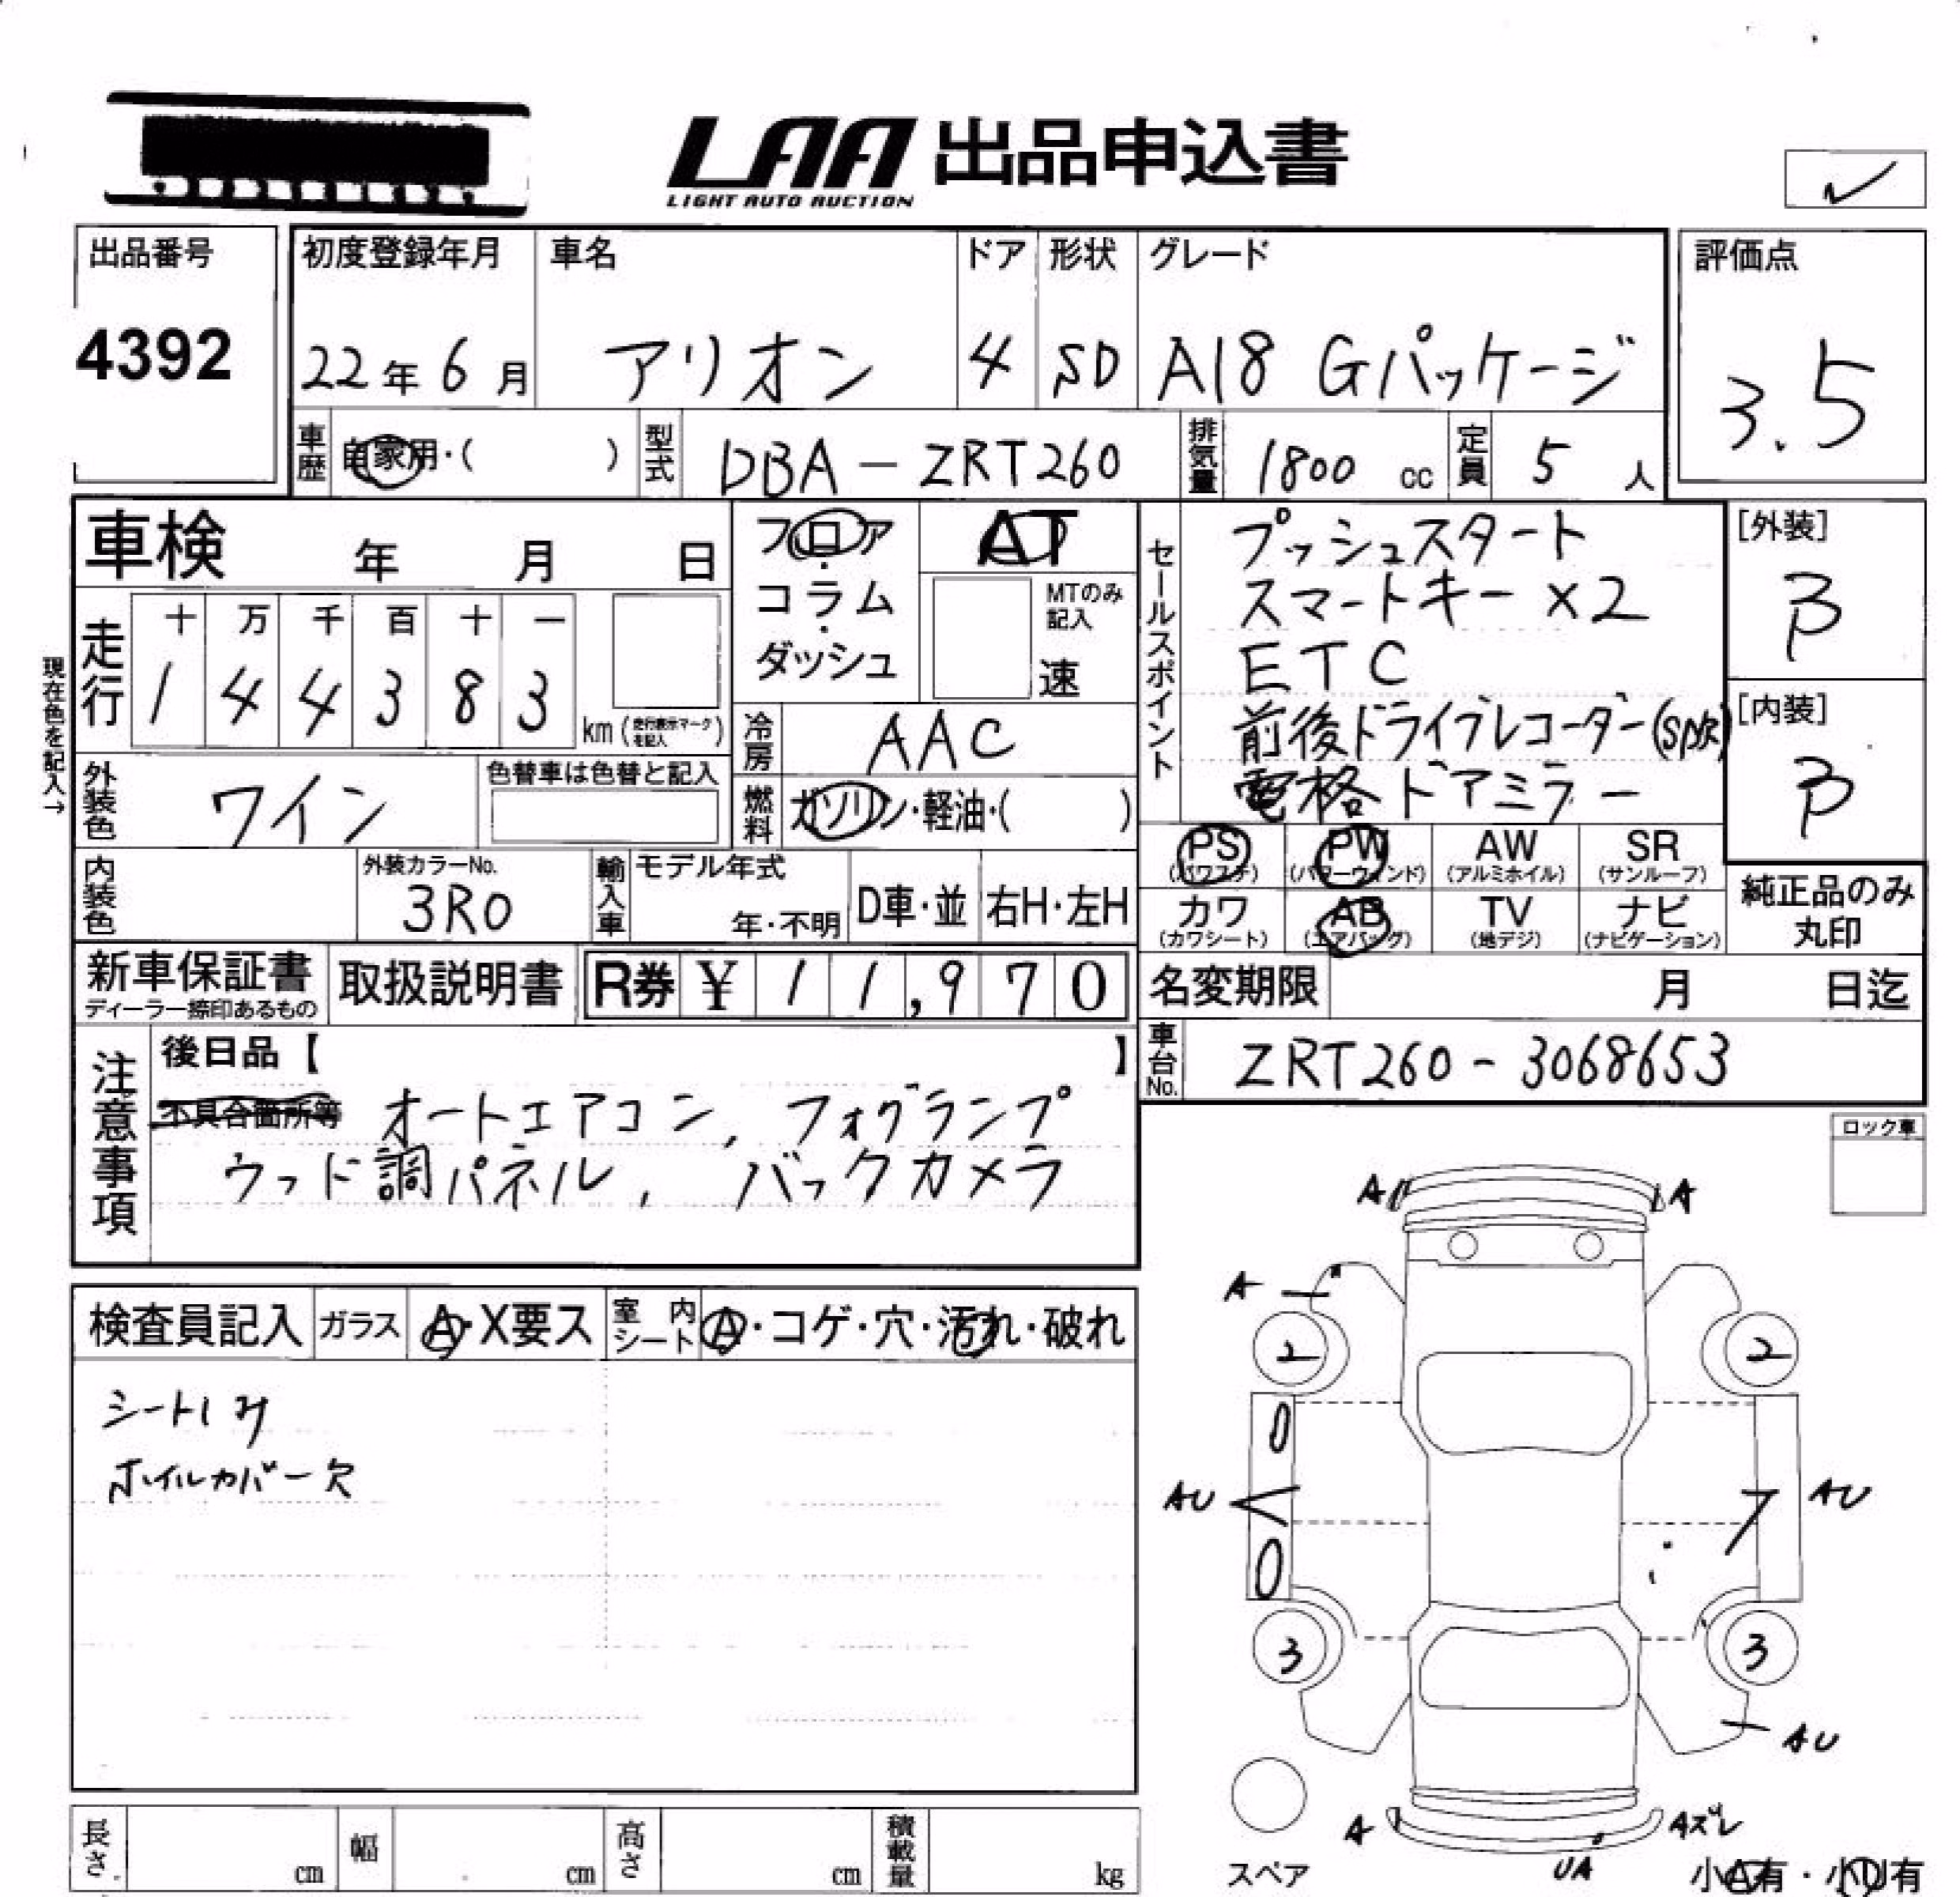 LAA 出品申込書
LIGHT AUTO AUCTION
出品番号
4392
初度登録年月
22年6月
車名
アリオン
ドア
4
形状
SD
グレード
A18 Gパッケージ
評価点
3.5
車歴 自家用・( )
型式 DBA-ZRT260
排気量 1800 cc
定員 5 人
車検 年 月 日
走行
十 万 千 百 十 一
1 4 4 3 8 3
km (走行表示マークを記入)
現在色を記入→
外装色 ワイン
色替車は色替と記入
内装色
外装カラーNo.
3R0
フロア
・
コラム
・
ダッシュ
AT
MTのみ
記入
速
冷房 AAC
燃料 ガソリン・軽油・( )
輸入車
モデル年式
年・不明
D車・並
右H・左H
セールスポイント
プッシュスタート
スマートキー ×2
ETC
前後ドライブレコーダー
電格ドアミラー
[外装]
B
[内装]
B
PS
(パワステ)
PW
(パワーウィンド)
AW
(アルミホイル)
SR
(サンルーフ)
カワ
(カワシート)
AB
(エアバッグ)
TV
(地デジ)
ナビ
(ナビゲーション)
純正品のみ
丸印
新車保証書
ディーラー捺印あるもの
取扱説明書
R券 ¥11,970
名変期限 月 日迄
車台No. ZRT260-3068653
注意事項
後日品【 】
不具合箇所等 オートエアコン, フォグランプ
ウッド調パネル, バックカメラ
ロック車
検査員記入
ガラス A・X要ス
室内シート A・コゲ・穴・汚れ・破れ
シートシミ
ホイルカバー欠
A A
A
2 2
AU AU
3 3
AU
A Aズレ
UA
スペア
小A有・小U有
長さ cm
幅 cm
高さ cm
積載量 kg